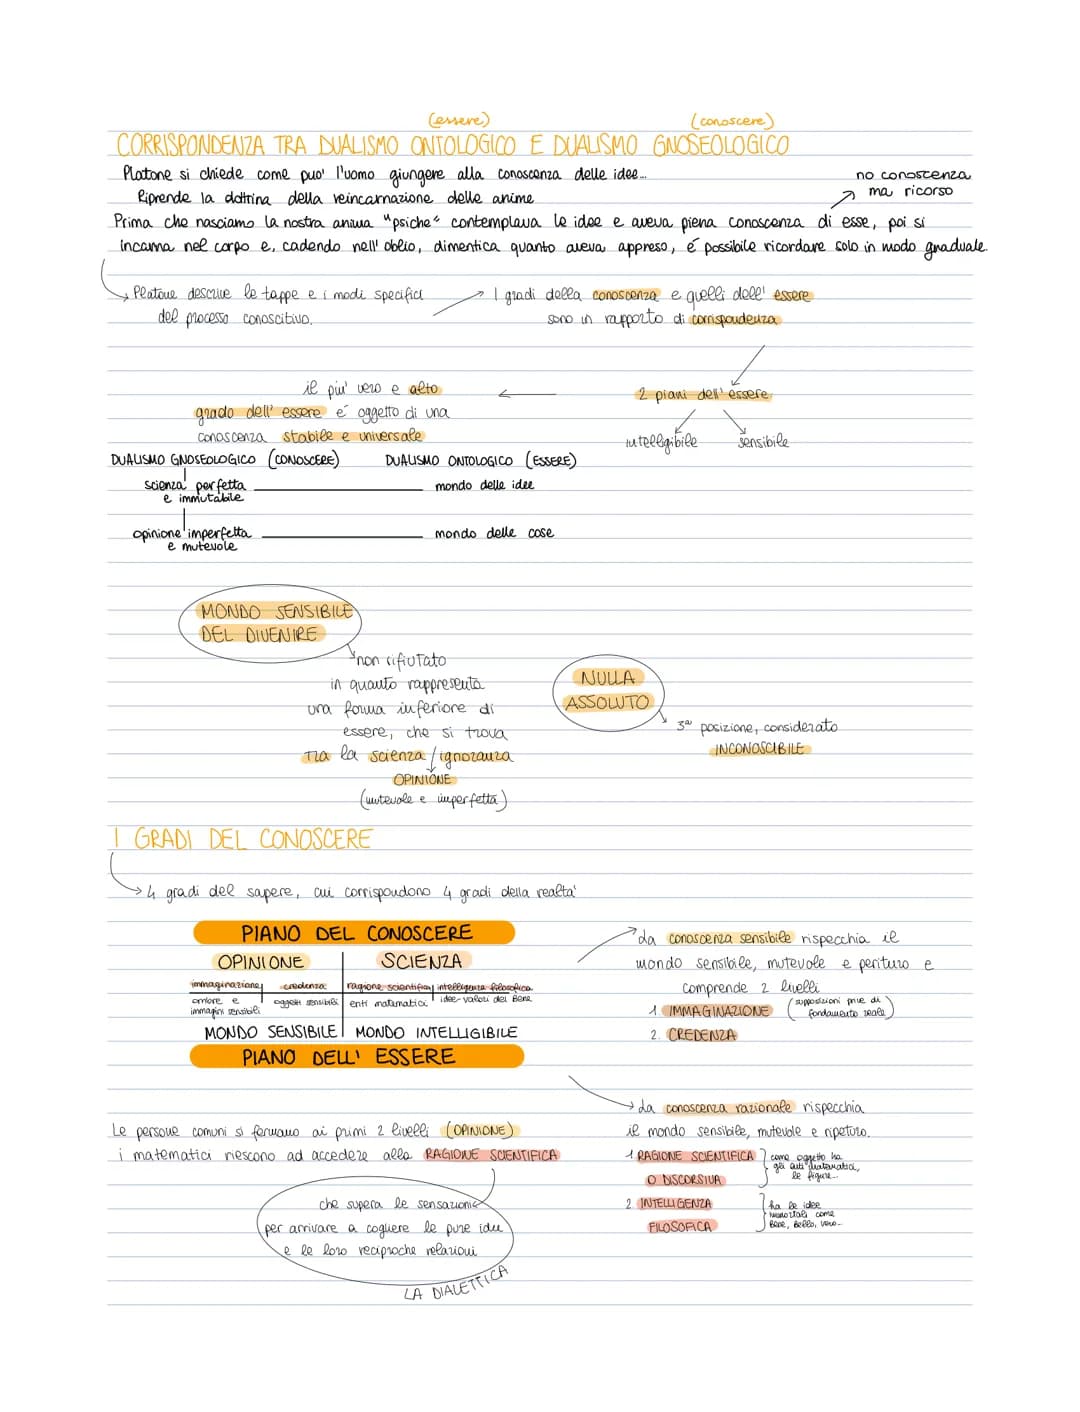 (essere) (conoscere)
CORRISPONDENZA TRA DUALISMO ONTOLOGICO E DUALISMO GNOSEOLOGICO
Platone si chiede come puo' l'uomo giungere alla conoscenza delle idee...
no conoscenza
ma ricorso
Riprende la dottrina della reincarnazione delle anime
Prima che nasciamo la nostra anima "psiche" contemplava le idee e aveva piena conoscenza di esse, poi si
incarna nel corpo e, cadendo nell' oblio, dimentica quanto aveva appreso, é possibile ricordare solo in modo graduale.
Platone descrive le tappe e i modi specifici
del processo conoscitivo.
I gradi della conoscenza e quelli dell' essere
sono in rapporto di corrispondenza
2 piani dell' essere
intelligibile sensibile
il piu' vero e alto
grado dell' essere é oggetto di una
conoscenza stabile e universale
DUALISMO GNOSEOLOGICO (CONOSCERE) DUALISMO ONTOLOGICO (ESSERE)
scienza perfetta mondo delle idee
e immutabile
opinione imperfetta mondo delle cose
e mutevole
MONDO SENSIBILE
DEL DIVENIRE
non rifiutato
in quanto rappresenta
una forma inferiore di
essere, che si trova
tra la scienza/ignoranza
OPINIONE
(mutevole e imperfetta)
NULLA
ASSOLUTO
3ª posizione, considerato
INCONOSCIBILE
I GRADI DEL CONOSCERE
4 gradi del sapere, cui corrispondono 4 gradi della realta'
PIANO DEL CONOSCERE
OPINIONE SCIENZA
immaginazione credenza ragione scientifica intelligenza filosofica
ombre e oggetti sensibili enti matematici idee-valori del Bene
immagini sensibili
MONDO SENSIBILE MONDO INTELLIGIBILE
PIANO DELL' ESSERE
La conoscenza sensibile rispecchia il
mondo sensibile, mutevole e perituro e
comprende 2 livelli
1. IMMAGINAZIONE (supposizioni prive di
fondamento reale)
2. CREDENZA
Le persone comuni si fermano ai primi 2 livelli (OPINIONE)
i matematici riescono ad accedere alla RAGIONE SCIENTIFICA
che supera le sensazioni
per arrivare a cogliere le pure idee
e le loro reciproche relazioni
LA DIALETTICA
La conoscenza razionale rispecchia
il mondo sensibile, mutevole e ripeturo.
1 RAGIONE SCIENTIFICA
O DISCORSIVA
come oggetto ha
gli enti matematici,
le figure...
2 INTELLIGENZA
FILOSOFICA
ha le idee
immortali come
Bene, Bello, Vero...